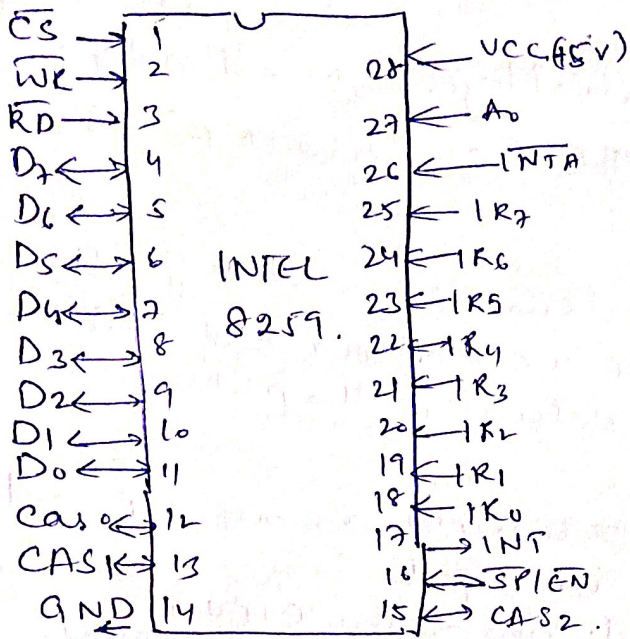 C̅S̅ 1
W̅R̅ 2
R̅D̅ 3
D7 4
D6 5
D5 6
D4 7
D3 8
D2 9
D1 10
D0 11
Cas0 12
CAS1 13
GND 14
INTEL
8259.
28 VCC(+5V)
27 A0
26 I̅N̅T̅A̅
25 IR7
24 IR6
23 IR5
22 IR4
21 IR3
20 IR2
19 IR1
18 IR0
17 INT
16 S̅P̅/E̅N̅
15 CAS2.